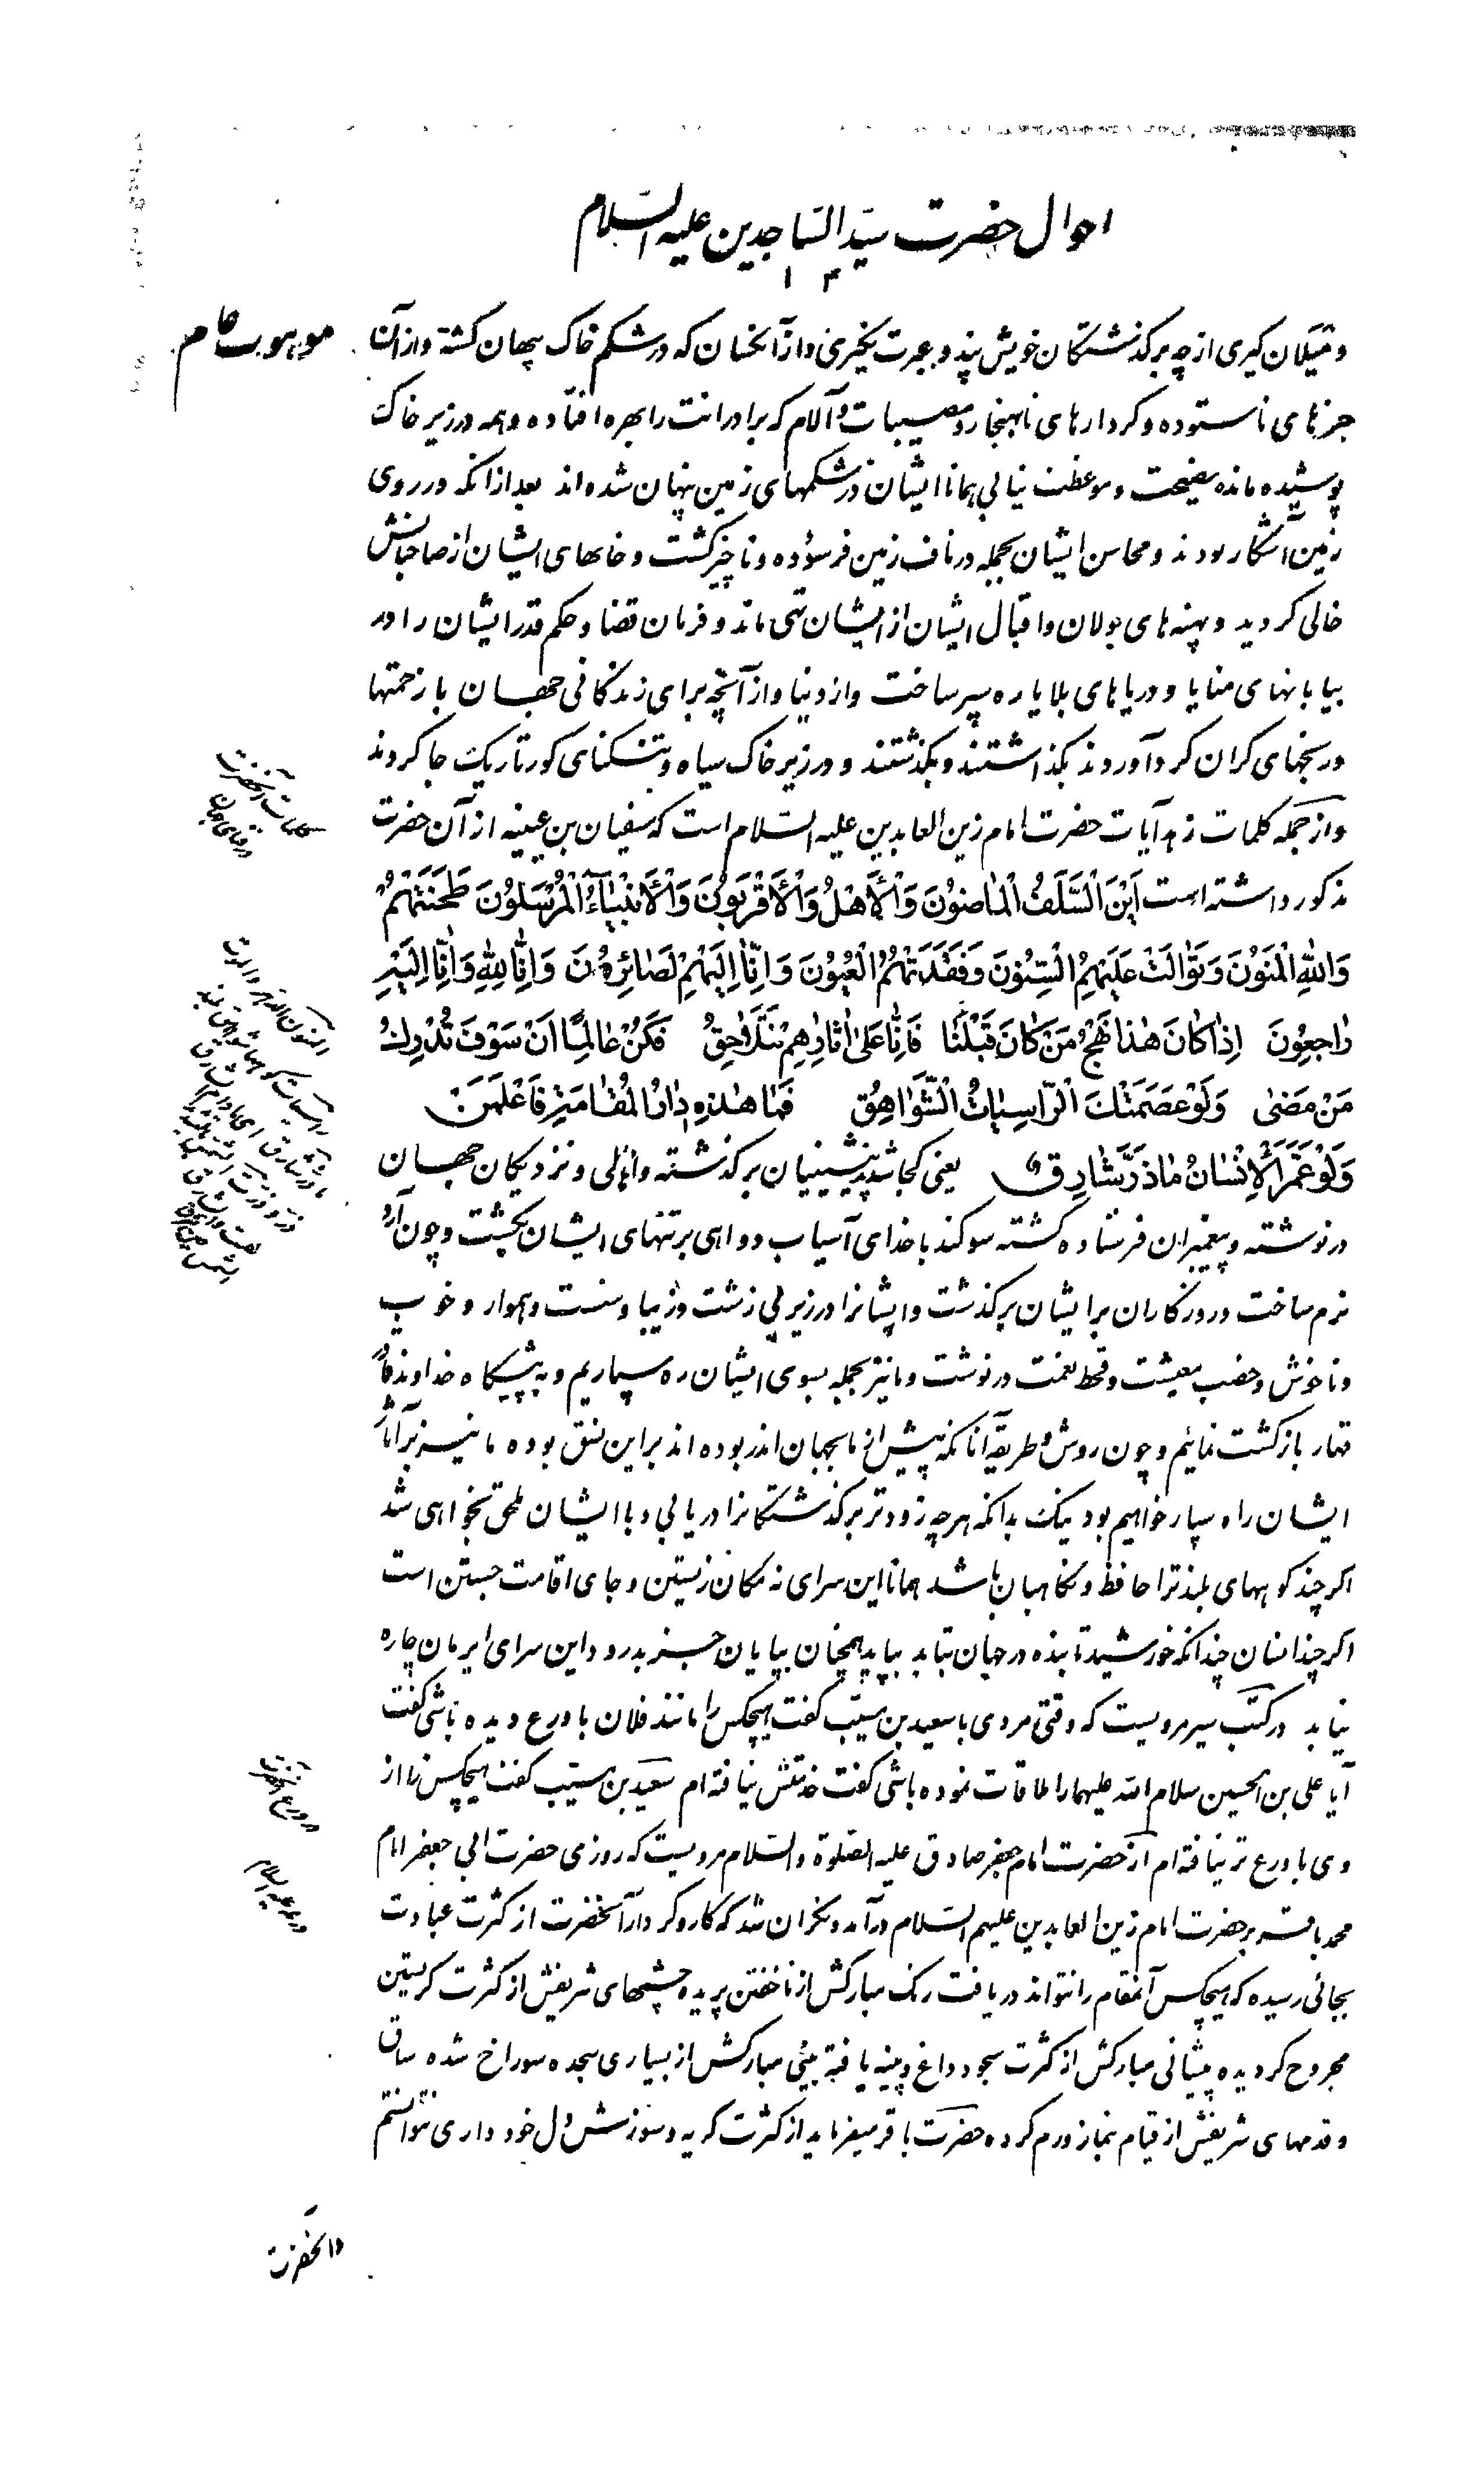 احوال حضرت سیّد السّاجدین علیه السّلام
۱۳
و تمیلان کیری از چه برکذشتکان خویش پند و عبرت نکیری و از آنکسان که در شکم خاک پنهان کشته و از آن
جزهای ناستوده و کردارهای نابهنجار و مصیبات و آلام که برادرانت را بهره افتاده و همه در زیر خاک
پوشیده مانده نصیحت و موعظت نیابی همانا ایشان در شکمهای زمین پنهان شده‌اند بعد از انکه در روی
زمین آشکار بودند و محاسن ایشان بجمله در ناف زمین فرسوده و ناچیز کشت و خانهای ایشان از صاحبانش
خالی کردید و پهنه‌های جولان و اقبال ایشان از ایشان تهی ماند و فرمان قضا و حکم قدر ایشان را در
بیابانهای منایا و دریاهای بلایا ره سپر ساخت و از دنیا و از آنچه برای زندکانی جهان با زحمتها
و رنجهای کران کرد آوردند بکذاشتند و بکذشتند و در زیر خاک سیاه و تنکنای کور تاریک جا کردند
و از جمله کلمات زهد آیات حضرت امام زین العابدین علیه السّلام است که سفیان بن عیینه از آن حضرت
مذکور داشته است اَیْنَ الْسَّلَفُ الْمٰاضُونَ وَ الْاَهْلُ وَ الْاَقْرَبُونَ وَ الْاَنْبِیٰآءُ الْمُرْسَلُونَ طَحَنَتْهُمْ
وَاللهِ الْمَنُونَ وَ تَوٰالَتْ عَلَیْهِمُ السِّنُونَ وَ فَقَدَتْهُمُ الْعُیُونَ وَ اِنّٰا اِلَیْهِمْ لَصٰائِرُونَ وَ اِنّٰا لِلّٰهِ وَ اِنّٰا اِلَیْهِ
رٰاجِعُونَ اِذٰا کٰانَ هٰذٰا نَهْجُ مَنْ کٰانَ قَبْلَنٰا فَاِنّٰا عَلیٰ اٰثٰارِهِمْ نَتَلٰاحِقُ فَکُنْ عٰالِمًا اَنْ سَوْفَ تُدْرِکُ
مَنْ مَضیٰ وَلَوْ عَصَمَتْكَ الرّٰاسِیٰاتُ الشَّوٰاهِقُ فَمٰا هٰذِهِ دٰارُ الْمُقٰامَةِ فَاعْلَمَنْ
وَلَوْ عَمَّرَ الْاِنْسٰانُ مٰا ذَرَّ شٰارِقُ یعنی کجا شدند پیشینیان برکذشته و اهالی و نزدیکان جهان
درنوشته و پیغمبران فرستاده کشته سوکند با خدای آسیاب دواهی بر تنهای ایشان بکشت و چون آرد
نرم ساخت و روزکاران بر ایشان برکذشت و ایشانرا در زیر پی زشت و زیبا و سست و هموار و خوب
و ناخوش و خصب معیشت و قحط نعمت درنوشت و ما نیز بجمله بسوی ایشان ره سپاریم و به پیشکاه خداوند
قهار بازکشت نمائیم و چون روش و طریقه آنانکه پیش از ما بجهان اندر بوده‌اند بر این نسق بوده ما نیز بر آثار
ایشان راه سپار خواهیم بود نیک بدانکه هر چه زودتر برکذشتکانرا دریابی و با ایشان ملحق خواهی شد
اکر چند کوههای بلند ترا حافظ و نکاهبان باشد همانا این سرای نه مکان زیستن و جای اقامت جستن است
اکر چند انسان چندانکه خورشید تابنده در جهان تابد بپاید همچنان بپایان جز بدرود این سرای ایرمان چاره
نیابد در کتب سیر مرویست که وقتی مردی با سعید بن مسیّب کفت هیچکس را مانند فلان با ورع دیده باشی کفت
آیا علی بن الحسین سلام الله علیهما را ملاقات نموده باشی کفت خدمتش نیافته‌ام سعید بن مسیّب کفت هیچکس را از
وی با ورع‌تر نیافته‌ام از حضرت امام جعفر صادق علیه الصّلوة و السّلام مرویست که روزی حضرت ابی جعفر امام
محمد باقر بر حضرت امام زین العابدین علیهم السّلام درآمد و نکران شد که کار و کردار آنحضرت از کثرت عبادت
بجائی رسیده که هیچکس آنمقام را نتواند دریافت رنک مبارکش از ناخفتن پریده چشمهای شریفش از کثرت کریستن
مجروح کردیده پیشانی مبارکش از کثرت سجود داغ و پینه یافته بینی مبارکش از بسیاری سجده سوراخ شده ساق
و قدمهای شریفش از قیام نماز ورم کرده حضرت باقر میفرماید از کثرت کریه و سوزش دل خودداری نتوانستم
کلمات آنحضرت
در فنای جهان
در ورع آنحضرت